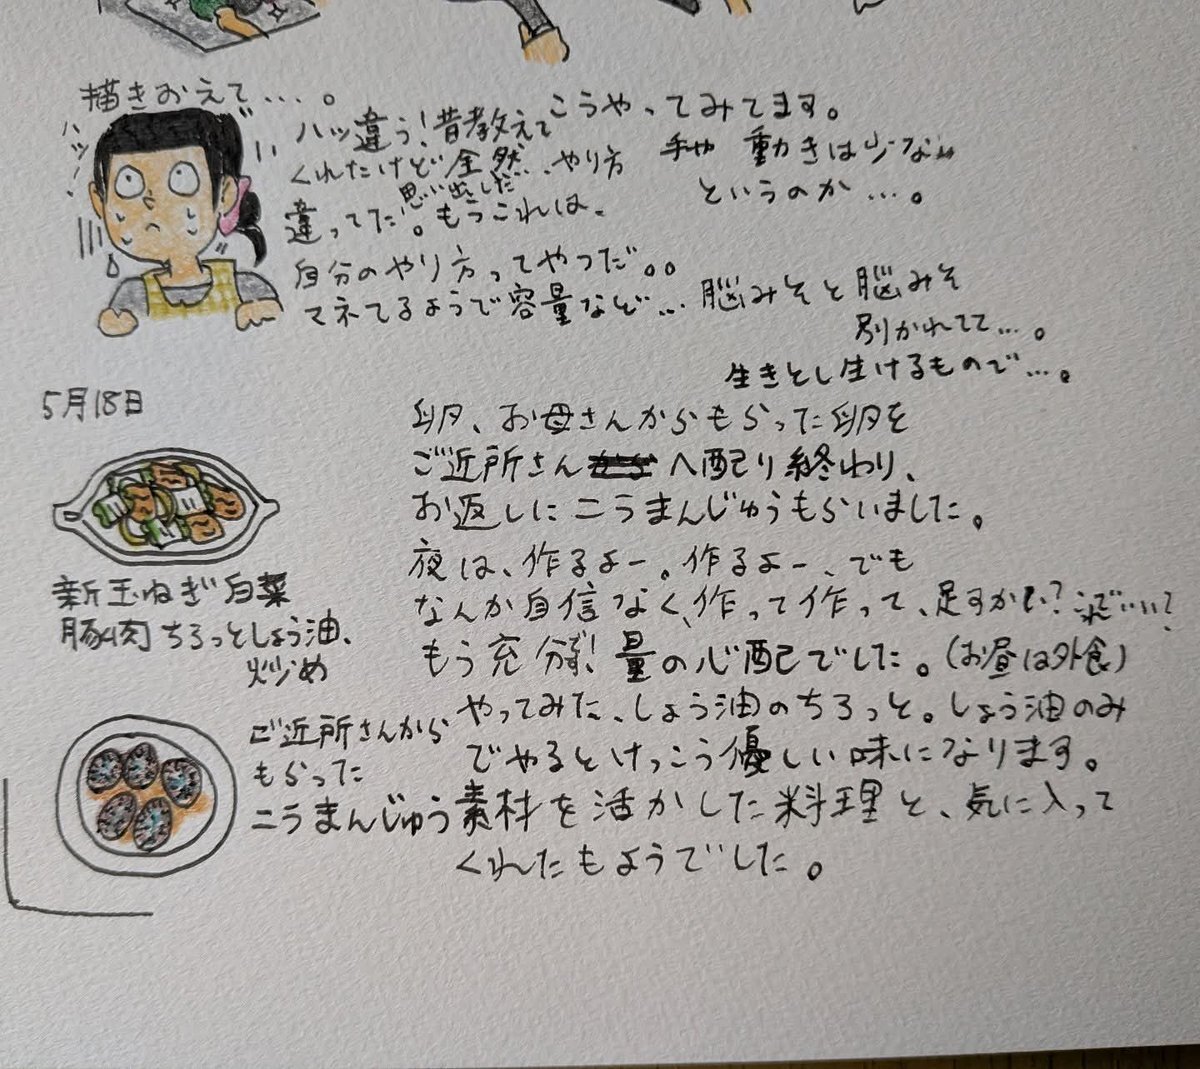 描きおえて…。
ハッ
ハッ違う!昔教えて
くれたけど全然…やり方
思い出した
違ってた。もうこれは、
自分のやり方ってやつだ。。
マネてるようで容量など…
こうやってみてます。
動きは少ない
というのか…。
脳みそと脳みそ
別かれてて…。
生きとし生けるもので…。
5月18日
卵、お母さんからもらった卵を
ご近所さんへ配り終わり、
お返しにニラまんじゅうもらいました。
夜は、作るよー。作るよー、でも
なんか自信なく、作って作って、足すかい?これで…いい?
もう充分!量の心配でした。(お昼は外食)
やってみた、しょう油のちろっと。しょう油のみ
でやるとけっこう優しい味になります。
素材を活かした料理と、気に入って
くれたもようでした。
新玉ねぎ白菜
豚肉ちろっとしょう油、
炒め
ご近所さんから
もらった
ニラまんじゅう